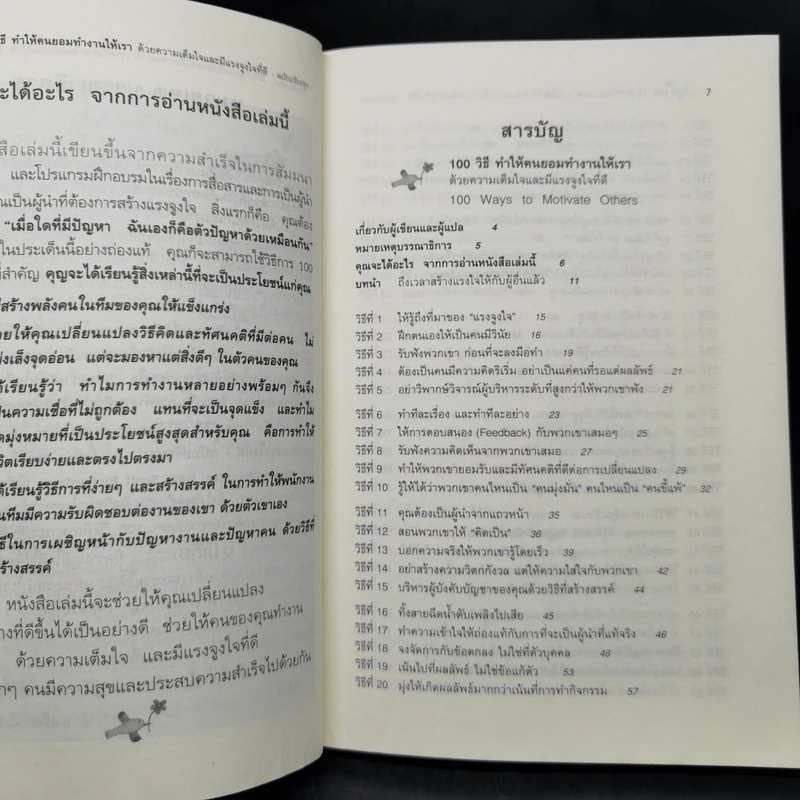 ธี ทำให้คนยอมทำงานให้เรา ด้วยความเต็มใจและมีแรงจูงใจที่ดี
ะได้อะไร จากการอ่านหนังสือเล่มนี้
สือเล่มนี้เขียนขึ้นจากความสำเร็จในการสัมมนา
และโปรแกรมฝึกอบรมในเรื่องการสื่อสารและการเป็นผู้นำ
ณเป็นผู้นำที่ต้องการสร้างแรงจูงใจ สิ่งแรกก็คือ คุณต้อง
"เมื่อใดที่มีปัญหา ฉันเองก็คือตัวปัญหาด้วยเหมือนกัน"
ในประเด็นนี้อย่างถ่องแท้ คุณก็จะสามารถใช้วิธีการ 100
ที่สำคัญ คุญจะได้เรียนรู้สิ่งเหล่านี้ที่จะเป็นประโยชน์แก่คุณ
สร้างพลังคนในทีมของคุณให้แข็งแกร่ง
ยให้คุณเปลี่ยนแปลงวิธีคิดและทัศนคติที่มีต่อคน ไม่
งเล็งจุดอ่อน แต่จะมองหาแต่สิ่งดีๆ ในตัวคนของคุณ
ด้เรียนรู้ว่า ทำไมการทำงานหลายอย่างพร้อมๆ กันจึง
ป็นความเชื่อที่ไม่ถูกต้อง แทนที่จะเป็นจุดแข็ง และทำไม
ดมุ่งหมายที่เป็นประโยชน์สูงสุดสำหรับคุณ คือการทำให้
วิตเรียบง่ายและตรงไปตรงมา
ด้เรียนรู้วิธีการที่ง่ายๆ และสร้างสรรค์ ในการทำให้พนักงาน
นทีมมีความรับผิดชอบต่องานของเขา ด้วยตัวเขาเอง
ธีในการเผชิญหน้ากับปัญหางานและปัญหาคน ด้วยวิธีที่
สร้างสรรค์
หนังสือเล่มนี้จะช่วยให้คุณเปลี่ยนแปลง
างที่ดีขึ้นได้เป็นอย่างดี ช่วยให้คนของคุณทำงาน
ด้วยความเต็มใจ และมีแรงจูงใจที่ดี
กๆ คนมีความสุขและประสบความสำเร็จไปด้วยกัน
7
สารบัญ
100 วิธี ทำให้คนยอมทำงานให้เรา
ด้วยความเต็มใจและมีแรงจูงใจที่ดี
100 Ways to Motivate Others
เกี่ยวกับผู้เขียนและผู้แปล 4
หมายเหตุบรรณาธิการ 5
คุณจะได้อะไร จากการอ่านหนังสือเล่มนี้ 6
บทนำ ถึงเวลาสร้างแรงใจให้กับผู้อื่นแล้ว 11
วิธีที่ 1 ให้รู้ถึงที่มาของ "แรงจูงใจ" 15
วิธีที่ 2 ฝึกตนเองให้เป็นคนมีวินัย 16
วิธีที่ 3 รับฟังพวกเขา ก่อนที่จะลงมือทำ 19
วิธีที่ 4 ต้องเป็นคนมีความคิดริเริ่ม อย่าเป็นแค่คนที่รอแต่ผลลัพธ์ 21
วิธีที่ 5 อย่าวิพากษ์วิจารณ์ผู้บริหารระดับที่สูงกว่าให้พวกเขาฟัง 21
วิธีที่ 6 ทำทีละเรื่อง และทำทีละอย่าง 23
วิธีที่ 7 ให้การตอบสนอง (Feedback) กับพวกเขาเสมอๆ 25
วิธีที่ 8 รับฟังความคิดเห็นจากพวกเขาเสมอ 27
วิธีที่ 9 ทำให้พวกเขายอมรับและมีทัศนคติที่ดีต่อการเปลี่ยนแปลง 29
วิธีที่ 10 รู้ให้ได้ว่าพวกเขาคนไหนเป็น "คนมุ่งมั่น" คนไหนเป็น "คนขี้แพ้" 32
วิธีที่ 11 คุณต้องเป็นผู้นำจากแถวหน้า 35
วิธีที่ 12 สอนพวกเขาให้ "คิดเป็น" 36
วิธีที่ 13 บอกความจริงให้พวกเขารู้โดยเร็ว 39
วิธีที่ 14 อย่าสร้างความวิตกกังวล แต่ให้ความใส่ใจกับพวกเขา 42
วิธีที่ 15 บริหารผู้บังคับบัญชาของคุณด้วยวิธีที่สร้างสรรค์ 44
วิธีที่ 16 ทิ้งสายฉีดน้ำดับเพลิงไปเสีย 45
วิธีที่ 17 ทำความเข้าใจให้ถ่องแท้กับการที่จะเป็นผู้นำที่แท้จริง 46
วิธีที่ 18 จงจัดการกับข้อตกลง ไม่ใช่ที่ตัวบุคคล 48
วิธีที่ 19 เน้นไปที่ผลลัพธ์ ไม่ใช่ข้อแก้ตัว 53
วิธีที่ 20 มุ่งให้เกิดผลลัพธ์มากกว่าเน้นที่การทำกิจกรรม 57